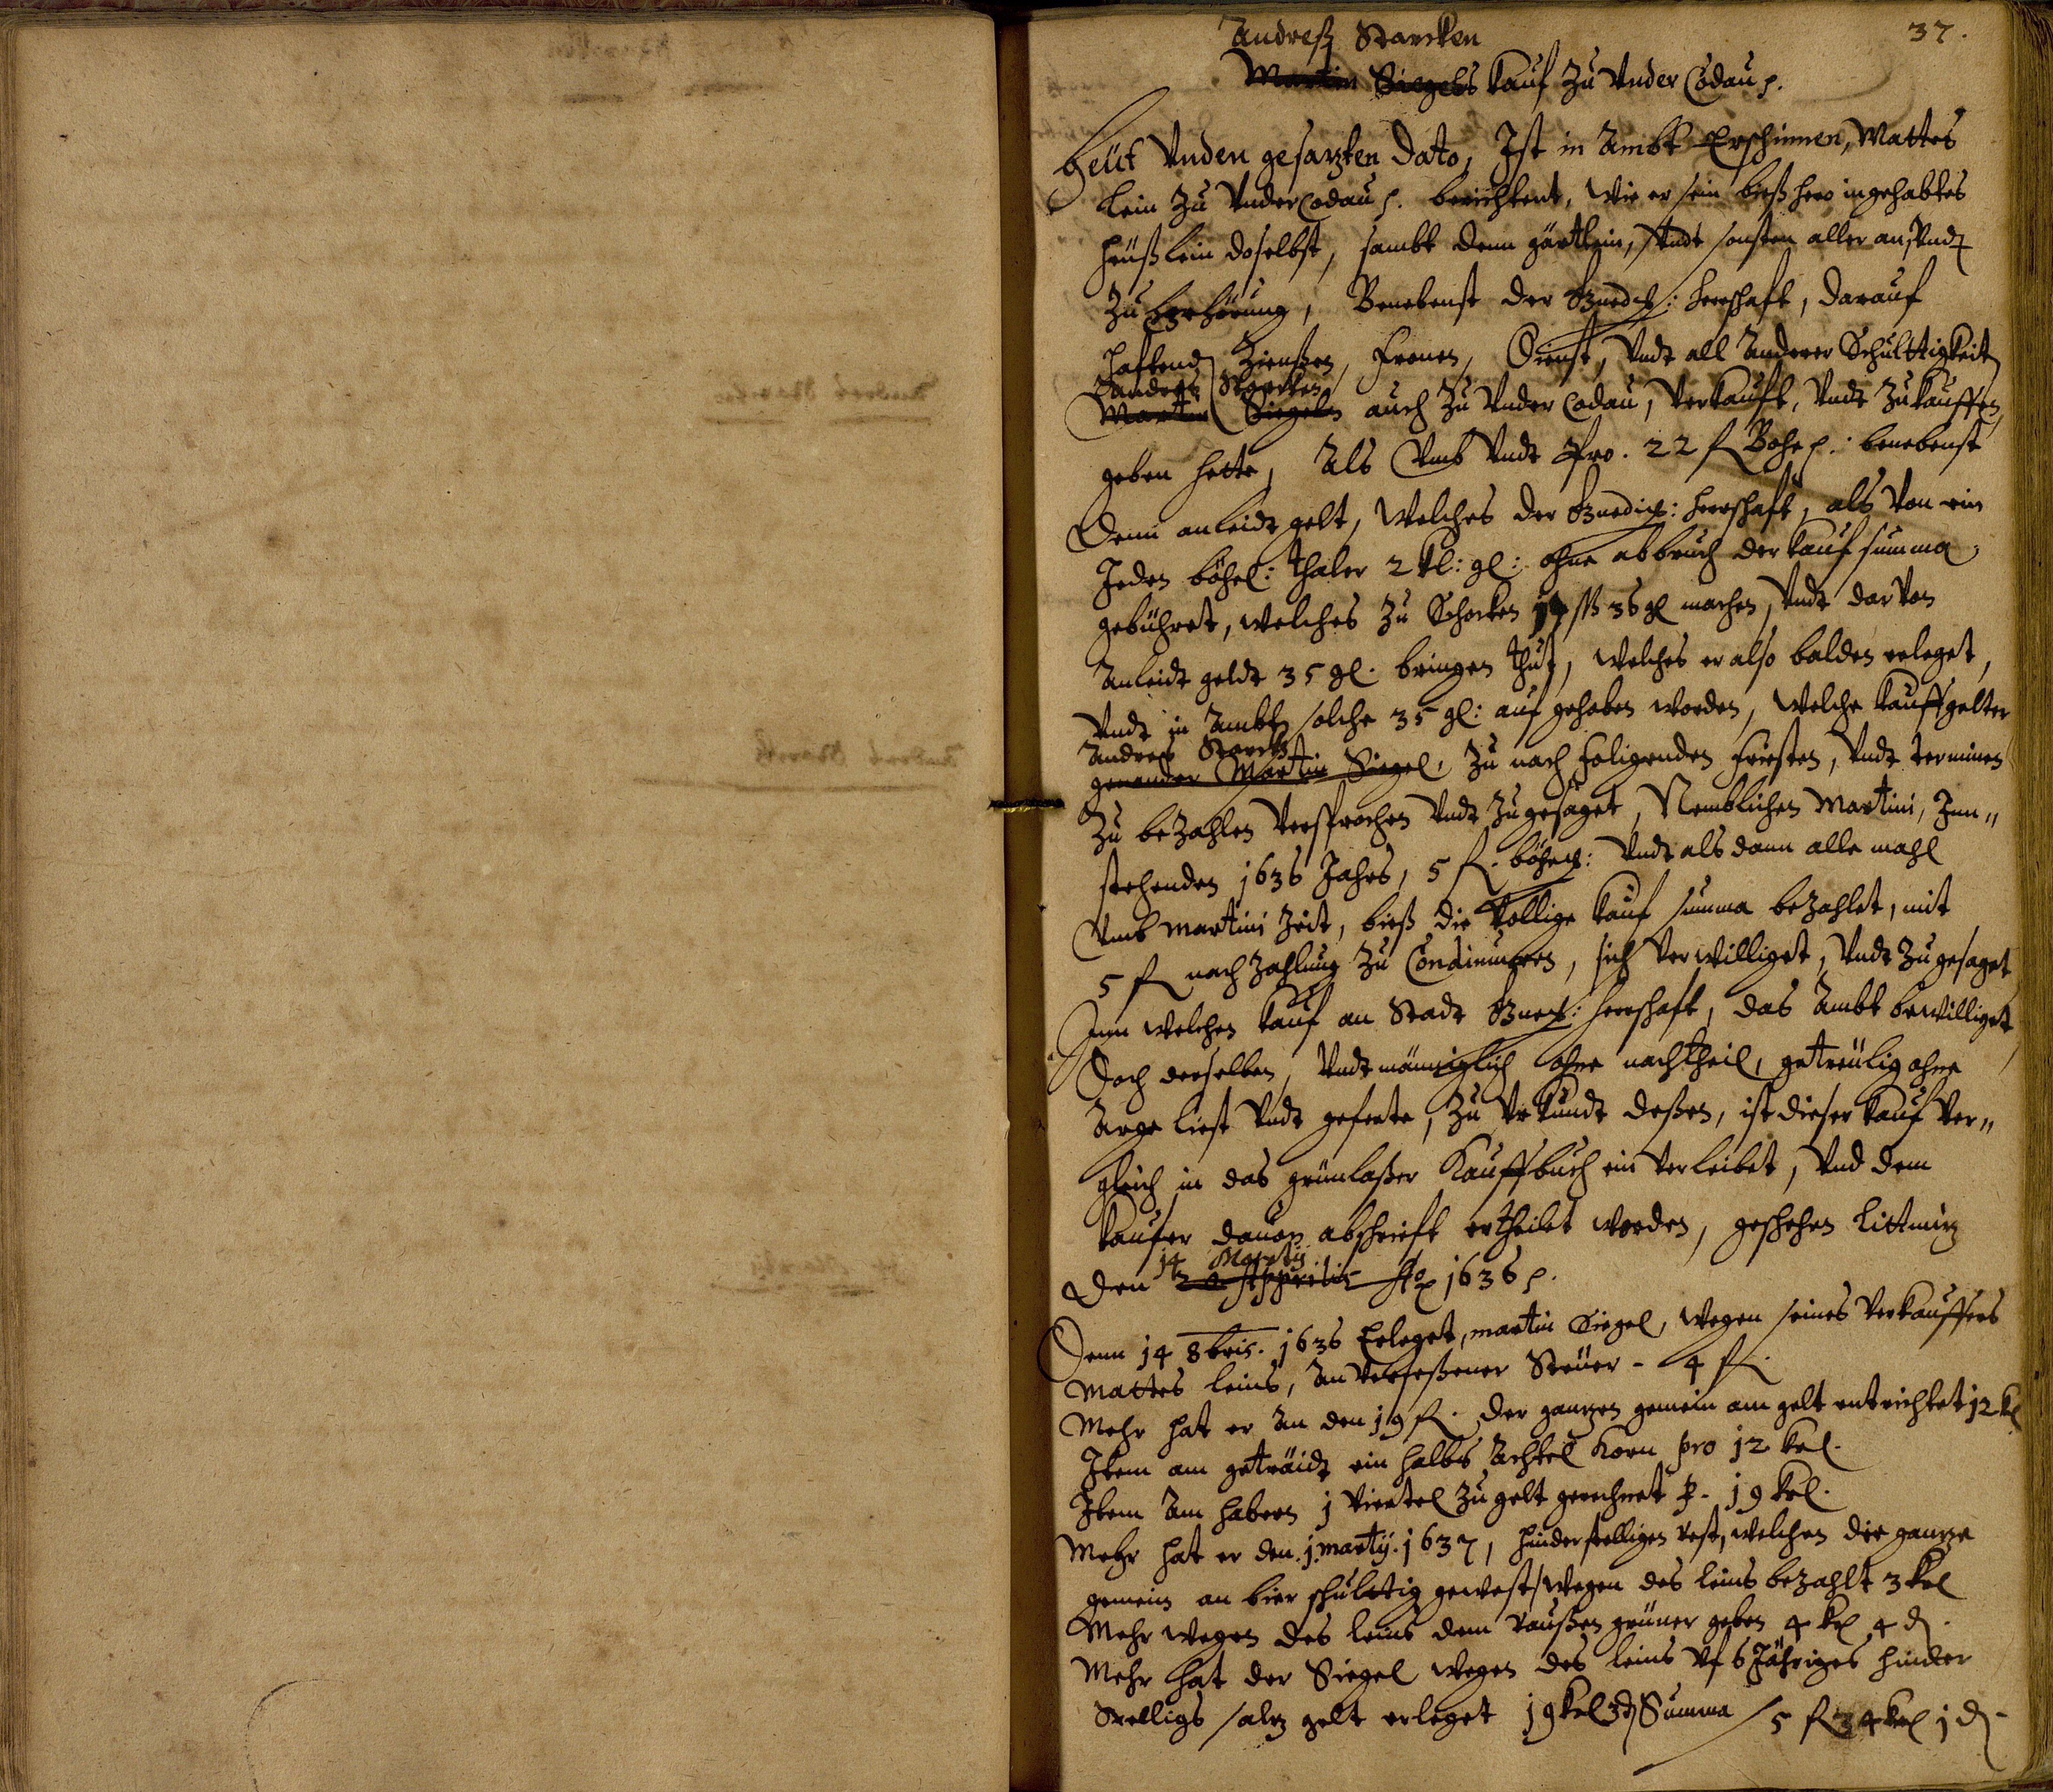 37.
Andreß Starcken
Martin Siegels Kauf zu Under Codau p.
Heüt unden gesazten Dato, Ist in Ambt Erschinnen, Mattes
Lein zu Under Codau p. berichtent, wie er sein bieß hero ingehabtes
heüßlein doselbst, sambt dem gärtlein, undt sonsten aller an, und
zu gehörung, Benebenst der Gnedig: herrschaft, darauf
haftend Zienßen, Fronen, Dienst, undt all Anderer Schulttigkeit
Andreß Starcken
Martin Siegeln auch zu Under Codau, verkauft, undt zukauffen
geben hette, Als umb undt pro. 22 fl Böhe: benebenst
Dem anleidt gelt, welches der Gnedig: herrschaft, als von ein
Jeden böhe: thaler 2 kl: gl: ohne abbruch der kauf summa
gebühret, welches zu Schocken 14 ß 36 gl machen, undt dar von
Anleidt geldt 35 gl. bringen thut, welches er also balden erleget,
Undt in Ambt solche 35 gl: auf gehoben worden, welche kauffgelter
Andreß Starck
genander Martin Siegel, zu nach folgenden Friesten, undt terminen
zu bezahlen versprochen undt zugesaget, Nemblichen Martini, Inn„
stehenden 1636 Jahrs, 5 fl. böhe: undt als dann alle mahl
umb Martini Zeit, bieß die Vollige kauf summa bezahlet, mit
5 fl nach zahlung zu Condinuiren, sich verwilliget, undt zugesaget
Inn welchen kauf an Stadt Gned: herrschaft, das Ambt bewilliget
Doch derselben, undt mäniglich ohne nachtheil, getreülig ohne
Arge liest undt geferte, zu Urkundt deßen, ist dieser kauf ver„
gleich in das grünlaßer Kauffbuch ein verleibet, und dem
kaufer davon abschrieft ertheilet worden, geschehen Littmiz
14 Martij
den Apprilis Ao 1636 p.
Denn 14 8bris. 1636 Erleget, Martin Siegel, wegen seines verkauffers
Mattes Leins, An verseßener Steüer - 4 fl.
Mehr hat er An den 19 fl. der ganzen gemein am gelt entrichtet 12 kl
Item am geträidt ein halbs Achtel Korn pro 12 krl.
Item Am habern 1 viertel zu gelt gerechnet p. 19 krl.
Mehr hat er den 1. Martij. 1637, hinderstelligen rest, welchen die ganze
gemein an bier schulttig gewest, wegen des Leins bezahlt 3 krl
Mehr wegen des Leins dem grüner geben 4 kl 4 d.
Mehr hat der Siegel wegen des Leins uf 6 Jähriges hinder
Stelligs salz gelt erleget 19 krl 3 d Summa 5 fl 34 krl 1 d